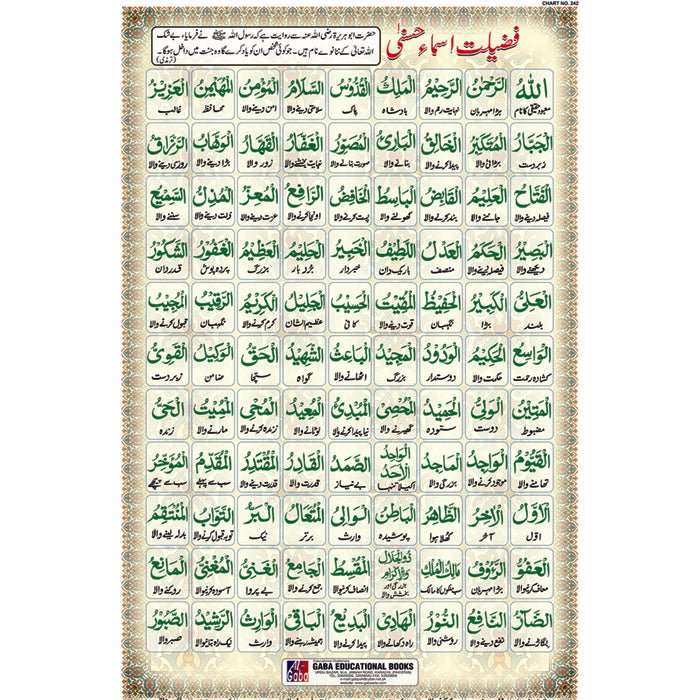 CHART NO. 242
فضیلت اسماء حسنٰی
حضرت ابو ہریرۃ رضی اللہ عنہ سے روایت ہے کہ رسول اللہ ﷺ نے فرمایا، بے شک
اللہ تعالیٰ کے ننانوے نام ہیں۔ جو کوئی شخص ان کو یاد کرے گا وہ جنت میں داخل ہوگا۔
(ترمذی)
اَللّٰهُ اَلرَّحْمٰنُ اَلرَّحِيْمُ اَلْمَلِكُ اَلْقُدُّوْسُ اَلسَّلَامُ اَلْمُؤْمِنُ اَلْمُهَيْمِنُ اَلْعَزِيْزُ
معبود حقیقی کا نام بڑا مہربان نہایت رحم والا بادشاہ پاک سلامتی دینے والا امن دینے والا محافظ غالب
اَلْجَبَّارُ اَلْمُتَكَبِّرُ اَلْخَالِقُ اَلْبَارِئُ اَلْمُصَوِّرُ اَلْغَفَّارُ اَلْقَهَّارُ اَلْوَهَّابُ اَلرَّزَّاقُ
زبردست بڑائی والا پیدا کرنے والا بنانے والا صورت بنانے والا نہایت بخشنے والا زور والا بڑا دینے والا روزی دینے والا
اَلْفَتَّاحُ اَلْعَلِيْمُ اَلْقَابِضُ اَلْبَاسِطُ اَلْخَافِضُ اَلرَّافِعُ اَلْمُعِزُّ اَلْمُذِلُّ اَلسَّمِيْعُ
فیصلہ دینے والا جاننے والا بند کرنے والا کھولنے والا پست کرنے والا اونچا کرنے والا عزت دینے والا ذلت دینے والا سننے والا
اَلْبَصِيْرُ اَلْحَكَمُ اَلْعَدْلُ اَللَّطِيْفُ اَلْخَبِيْرُ اَلْحَلِيْمُ اَلْعَظِيْمُ اَلْغَفُوْرُ اَلشَّكُوْرُ
دیکھنے والا فیصل دینے والا منصف باریک دان خبردار بردبار بزرگ پردہ پوش قدردان
اَلْعَلِيُّ اَلْكَبِيْرُ اَلْحَفِيْظُ اَلْمُقِيْتُ اَلْحَسِيْبُ اَلْجَلِيْلُ اَلْكَرِيْمُ اَلرَّقِيْبُ اَلْمُجِيْبُ
بلند بڑا نگہبان قوت دینے والا کافی عظیم الشان کرم کرنے والا نگہبان قبول کرنے والا
اَلْوَاسِعُ اَلْحَكِيْمُ اَلْوَدُوْدُ اَلْمَجِيْدُ اَلْبَاعِثُ اَلشَّهِيْدُ اَلْحَقُّ اَلْوَكِيْلُ اَلْقَوِيُّ
کشادہ رحمت حکمت والا دوستدار بزرگ اٹھانے والا گواہ سچا ضامن زبردست
اَلْمَتِيْنُ اَلْوَلِيُّ اَلْحَمِيْدُ اَلْمُحْصِيْ اَلْمُبْدِئُ اَلْمُعِيْدُ اَلْمُحْيِيْ اَلْمُمِيْتُ اَلْحَيُّ
مضبوط دوست ستودہ گھیرنے والا نیا پیدا کرنے والا لوٹانے والا زندہ کرنے والا مارنے والا زندہ
اَلْقَيُّوْمُ اَلْوَاجِدُ اَلْمَاجِدُ اَلْوَاحِدُ الْاَحَدُ اَلصَّمَدُ اَلْقَادِرُ اَلْمُقْتَدِرُ اَلْمُقَدِّمُ اَلْمُؤَخِّرُ
تھامنے والا موجود کرنے والا بزرگی والا اکیلا تنہا بے نیاز قدرت والا قدرت دینے والا سب سے پہلے سب سے پیچھے
اَلْاَوَّلُ اَلْاٰخِرُ اَلظَّاهِرُ اَلْبَاطِنُ اَلْوَالِيْ اَلْمُتَعَالُ اَلْبَرُّ اَلتَّوَّابُ اَلْمُنْتَقِمُ
اوّل آخر کھلا ہوا پوشیدہ وارث برتر نیک توبہ قبول کرنے والا بدلہ لینے والا
اَلْعَفُوُّ اَلرَّؤُوْفُ مَالِكُ الْمُلْكِ ذُوالْجَلَالِ وَالْاِكْرَامِ اَلْمُقْسِطُ اَلْجَامِعُ اَلْغَنِيُّ اَلْمُغْنِيُ اَلْمَانِعُ
معاف کرنے والا بڑا مہربان ملکوں کا مالک بزرگی اور بخشش والا انصاف کرنے والا جمع کرنے والا بے پروا آسودہ کرنے والا روکنے والا
اَلضَّآرُّ اَلنَّافِعُ اَلنُّوْرُ اَلْهَادِيْ اَلْبَدِيْعُ اَلْبَاقِيْ اَلْوَارِثُ اَلرَّشِيْدُ اَلصَّبُوْرُ
بگاڑنے والا نفع دینے والا روشنی والا راہ دکھانے والا ہمیشہ رہنے والا وارث صبر والا
Gaba
GABA EDUCATIONAL BOOKS
URDU BAZAR, M.A. JINNAH ROAD, KARACHI (PAKISTAN)